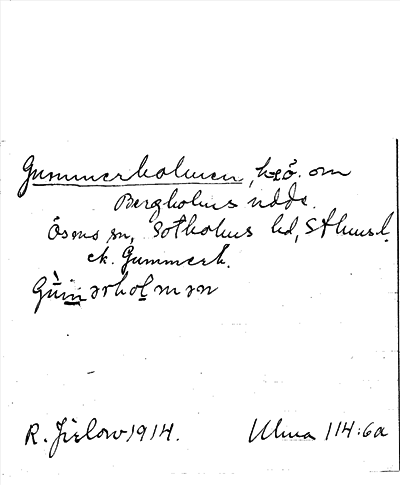 Gummerholmen, hzö. om
Bergholms udde.
Ösmo sn, Sotholms hd, Sthmsl.
ek. Gummerh.
Gùmərhoḷmən
R. Jirlow 1914. Ulma 114:6a